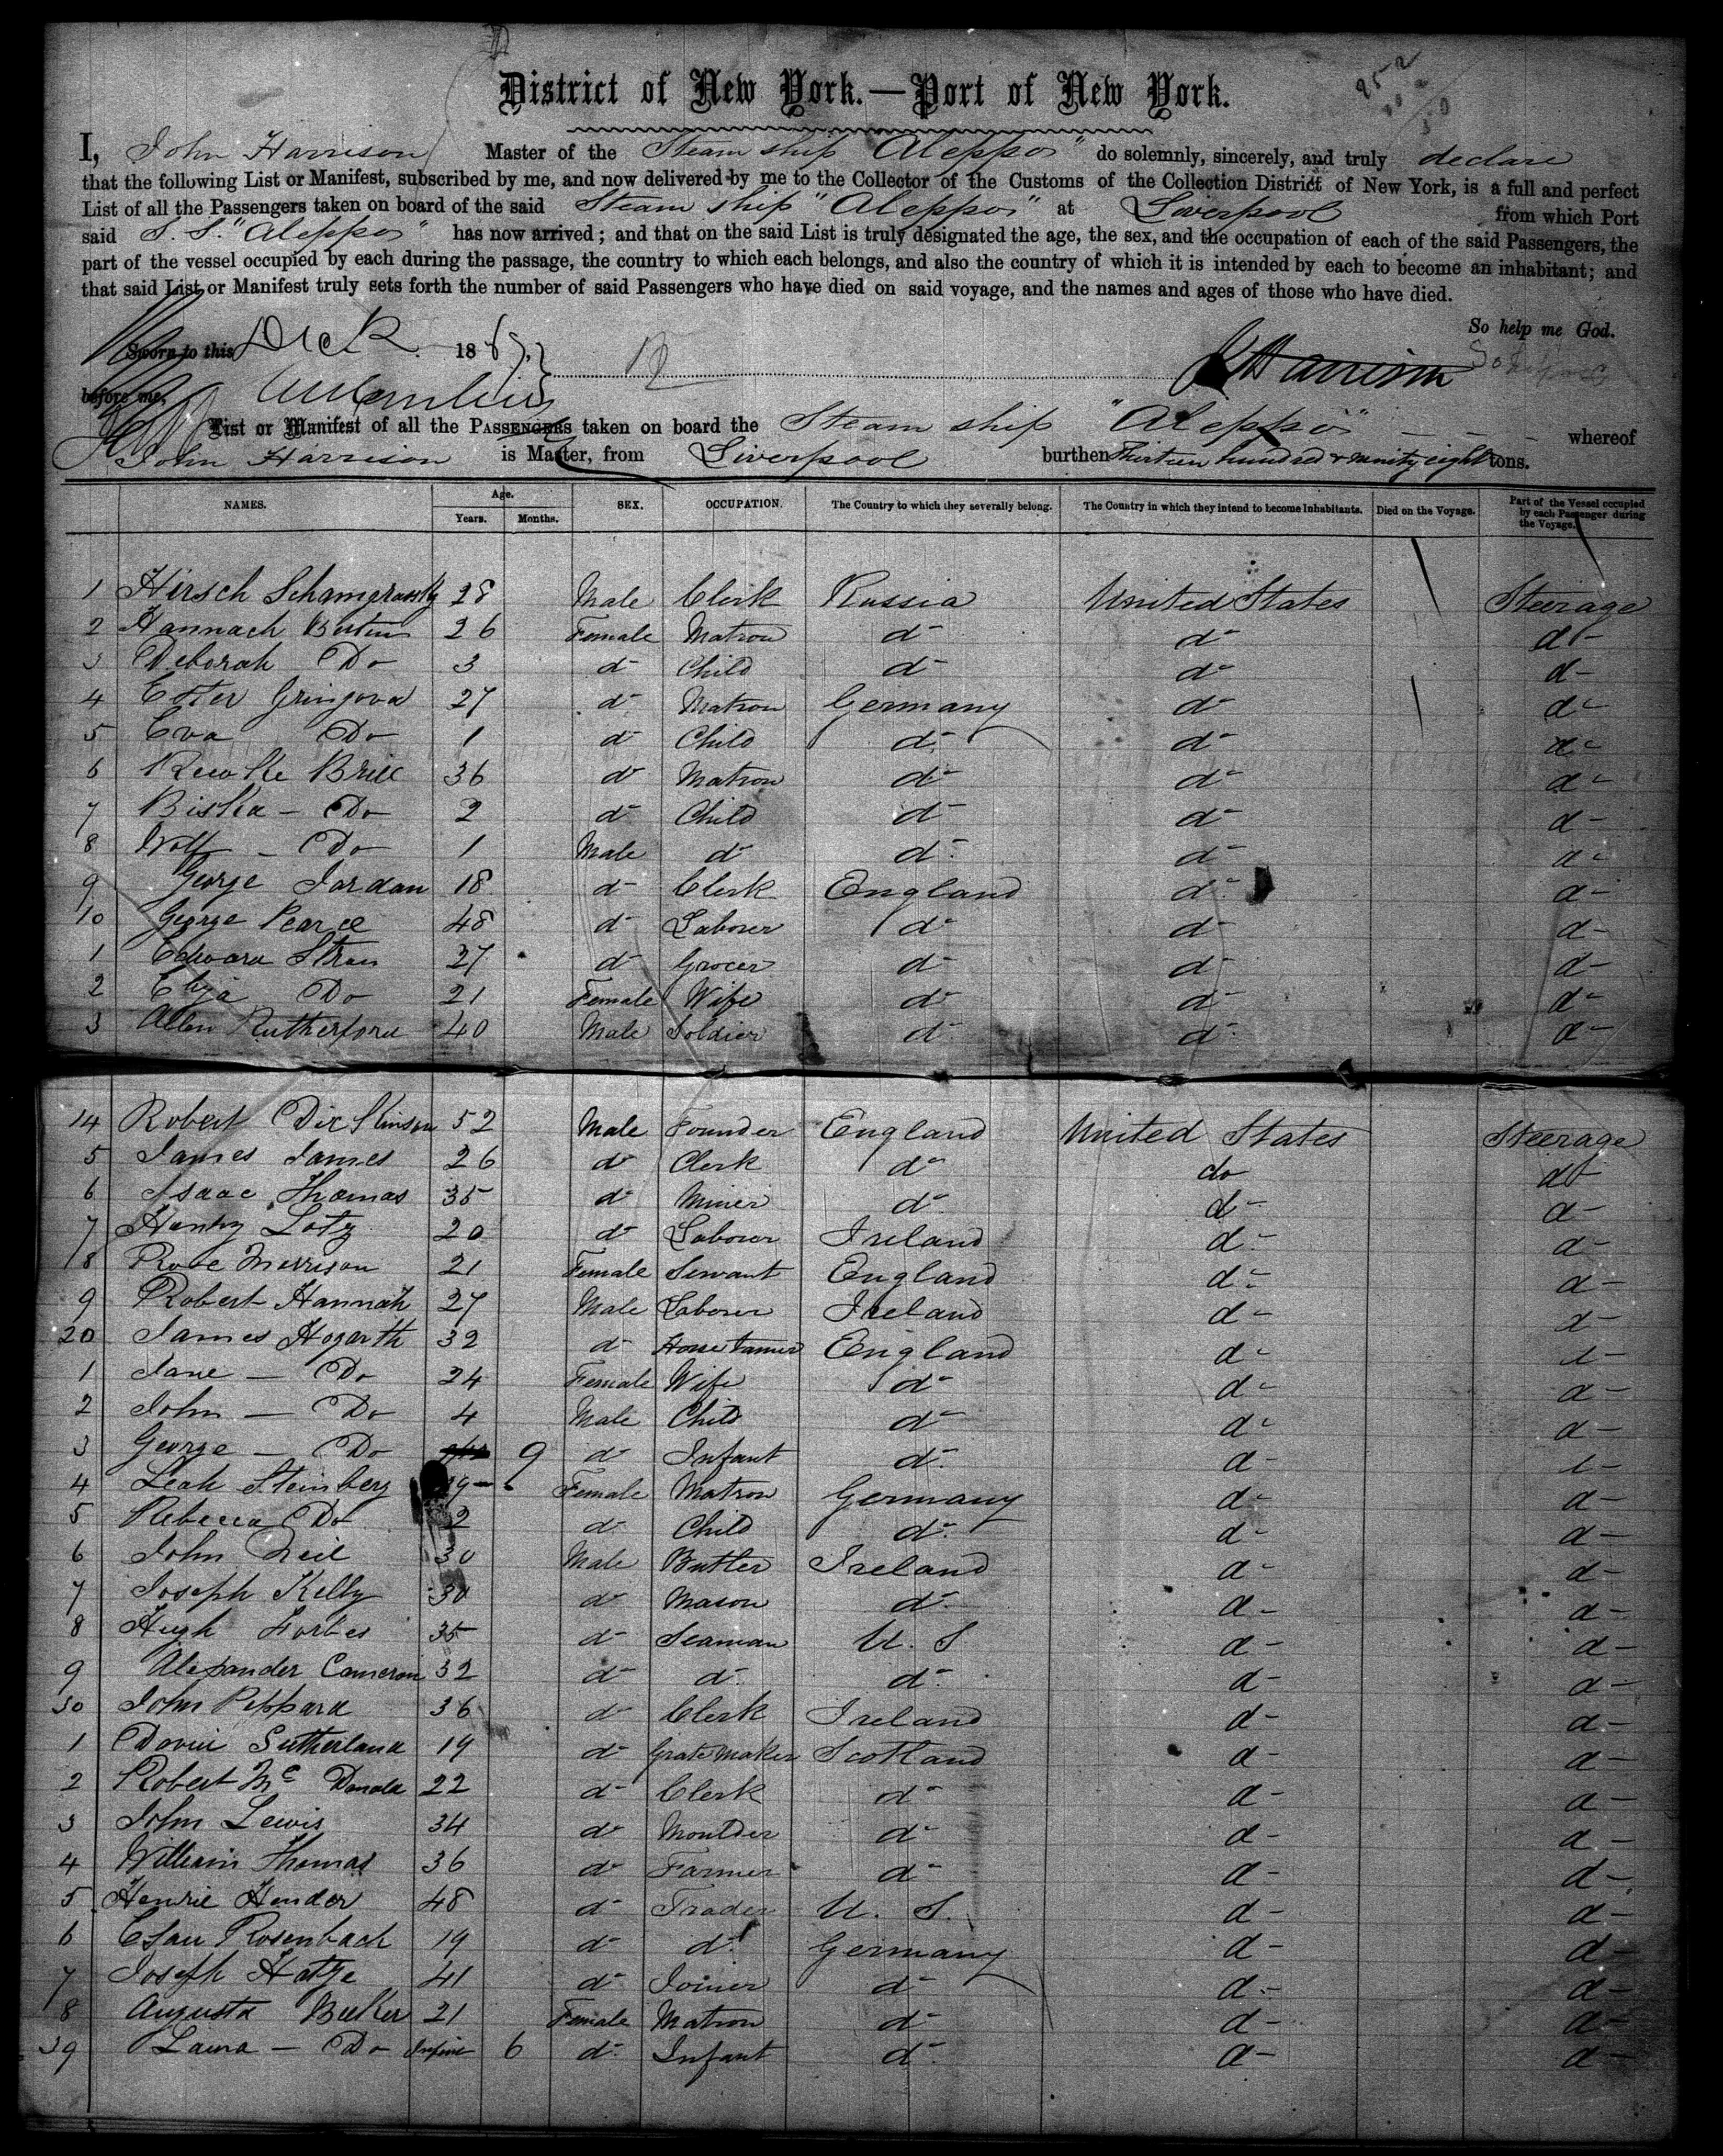 District of New York.—Port of New York.
I, John Harrison Master of the Steam ship "Aleppo" do solemnly, sincerely, and truly declare
that the following List or Manifest, subscribed by me, and now delivered by me to the Collector of the Customs of the Collection District of New York, is a full and perfect
List of all the Passengers taken on board of the said Steam ship "Aleppo" at Liverpool from which Port
said S. S. "Aleppo" has now arrived; and that on the said List is truly designated the age, the sex, and the occupation of each of the said Passengers, the
part of the vessel occupied by each during the passage, the country to which each belongs, and also the country of which it is intended by each to become an inhabitant; and
that said List or Manifest truly sets forth the number of said Passengers who have died on said voyage, and the names and ages of those who have died.
So help me God.
Sworn to this 1867. J Harrison
before me,
List or Manifest of all the PASSENGERS taken on board the Steam ship "Aleppo" whereof
John Harrison is Master, from Liverpool burthen Thirteen hundred & ninety eight tons.
NAMES. Age. Years. Months. SEX. OCCUPATION. The Country to which they severally belong. The Country in which they intend to become Inhabitants. Died on the Voyage. Part of the Vessel occupied by each Passenger during the Voyage.
1 Hirsch 28 Male Clerk Russia United States Steerage
2 Hannach 26 Female Matron do do do
3 Deborah Do 3 d- Child d- d- d-
4 Ester Gringova 27 d- Matron Germany d- d-
5 Eva Do 1 d- Child d- d- d-
6 Brill 36 d- Matron d- d- d-
7 Biska - Do 2 d- Child d- d- d-
8 Wolf - Do 1 Male d- d- d- d-
9 George Jordan 18 d- Clerk England d- d-
10 George Pearce 48 d- Laborer d- d- d-
1 Edward 27 d- Grocer d- d- d-
2 Eliza Do 21 Female Wife d- d- d-
3 Allen Rutherford 40 Male Soldier d- d- d-
14 Robert Dickinson 52 Male Founder England United States Steerage
5 James James 26 d- Clerk d- do do
6 Isaac Thomas 35 d- Miner d- d- d-
7 Henry Lotz 20 d- Laborer Ireland d- d-
18 Rose Merrison 21 Female Servant England d- d-
9 Robert Hannah 27 Male Laborer Ireland d- d-
20 James Hogarth 32 d- Horse tamer England d- d-
1 Jane - Do 24 Female Wife d- d- d-
2 John - Do 4 Male Child d- d- d-
3 George - Do 9 d- Infant d- d- d-
4 Leah Steinberg Female Matron Germany d- d-
5 Rebecca Do 2 d- Child d- d- d-
6 John Neil 30 Male Butler Ireland d- d-
7 Joseph Kelly 30 d- Mason d- d- d-
8 Hugh Forbes 35 d- Seaman U. S d- d-
9 Alexander Cameron 32 d- d- d- d- d-
30 John Peppard 36 d- Clerk Ireland d- d-
1 David Sutherland 19 d- Grate Maker Scotland d- d-
2 Robert Mc Donald 22 d- Clerk d- d- d-
3 John Lewis 34 d- Moulder d- d- d-
4 William Thomas 36 d- Farmer d- d- d-
5 Henrie Hender 48 d- Trader U. S. d- d-
6 Esau Rosenbach 19 d- d- Germany d- d-
7 Joseph Hatje 41 d- Joiner d- d- d-
8 Augusta 21 Female Matron d- d- d-
39 Laura - Do 6 d- Infant d- d- d-